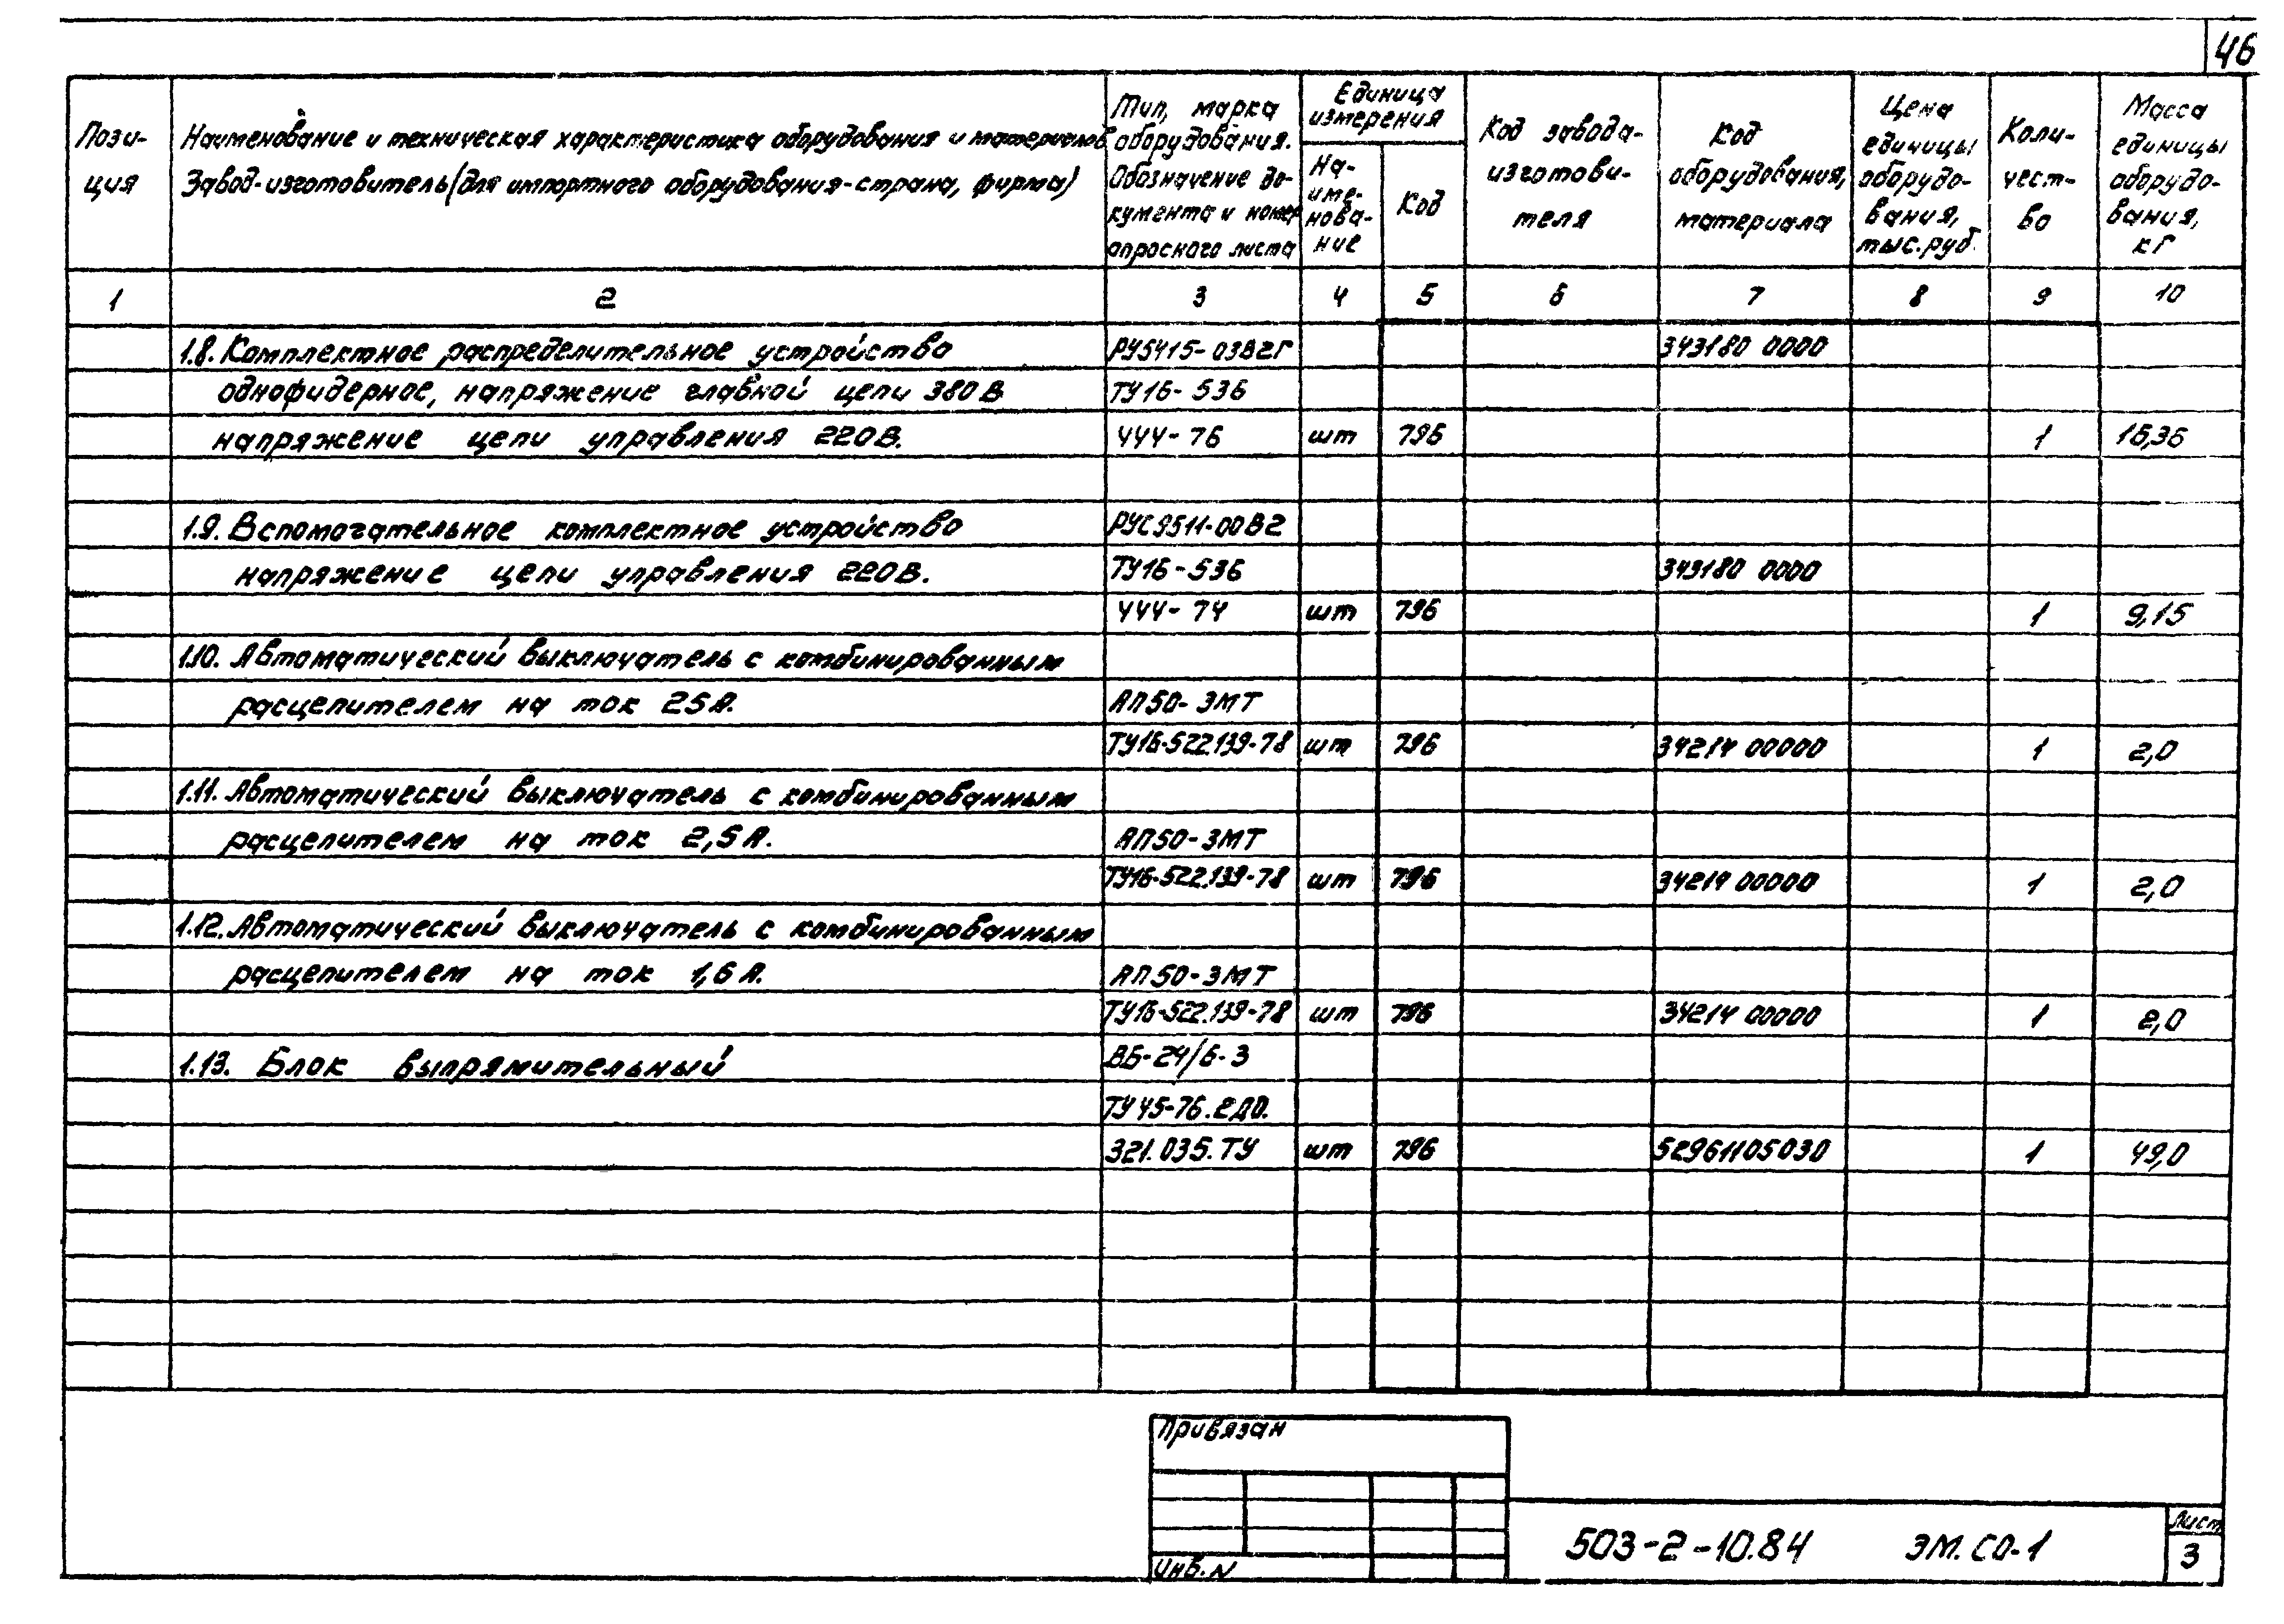 46
Пози-
ция
Наименование и техническая характеристика оборудования и материалов
Завод-изготовитель (для импортного оборудования-страна, фирма)
Тип, марка
оборудования.
Обозначение до-
кумента и номер
опросного листа
Единица
измерения
На-
име-
нова-
ние
Код
Код завода-
изготови-
теля
Код
оборудования,
материала
Цена
единицы
оборудо-
вания,
тыс.руб.
Коли-
чест-
во
Масса
единицы
оборудо-
вания,
кг
1 2 3 4 5 6 7 8 9 10
1.8. Комплектное распределительное устройство РУ5415-03В2Г 343180 0000
однофидерное, напряжение главной цепи 380В ТУ16-536
напряжение цепи управления 220В. 444-76 шт 796 1 16,36
1.9. Вспомогательное комплектное устройство РУС9511-00В2
напряжение цепи управления 220В. ТУ16-536 343180 0000
444-74 шт 796 1 9,15
1.10. Автоматический выключатель с комбинированным
расцепителем на ток 25А. АП50-3МТ
ТУ16-522.139-78 шт 796 34214 00000 1 2,0
1.11. Автоматический выключатель с комбинированным
расцепителем на ток 2,5А. АП50-3МТ
ТУ16-522.139-78 шт 796 34214 00000 1 2,0
1.12. Автоматический выключатель с комбинированным
расцепителем на ток 1,6А. АП50-3МТ
ТУ16-522.139-78 шт 796 34214 00000 1 2,0
1.13. Блок выпрямительный ВБ-24/6-3
ТУ45-76.2Д0.
321.035.ТУ шт 796 52961105030 1 49,0
Привязан
Инв.N
503-2-10.84 ЭМ.СО-1
Лист
3